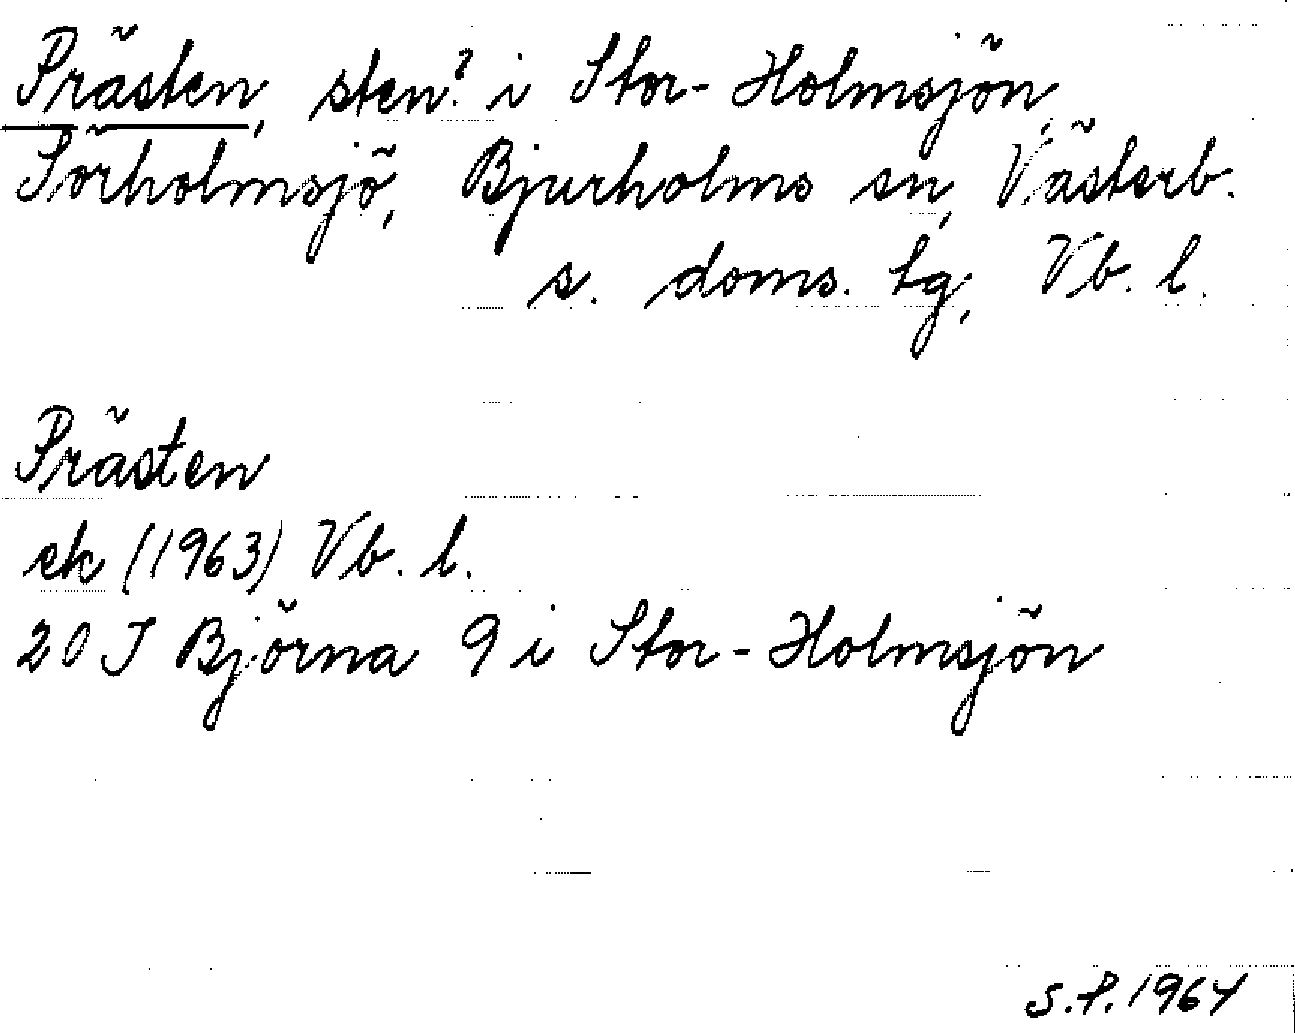 Prästen, sten? i Stor-Holmsjön,
Sörholmsjö, Bjurholms sn, Västerb.
s. doms. tg, Vb. l.
Prästen
ek (1963) Vb. l.
20 J Björna 9 i Stor-Holmsjön
S.P. 1964